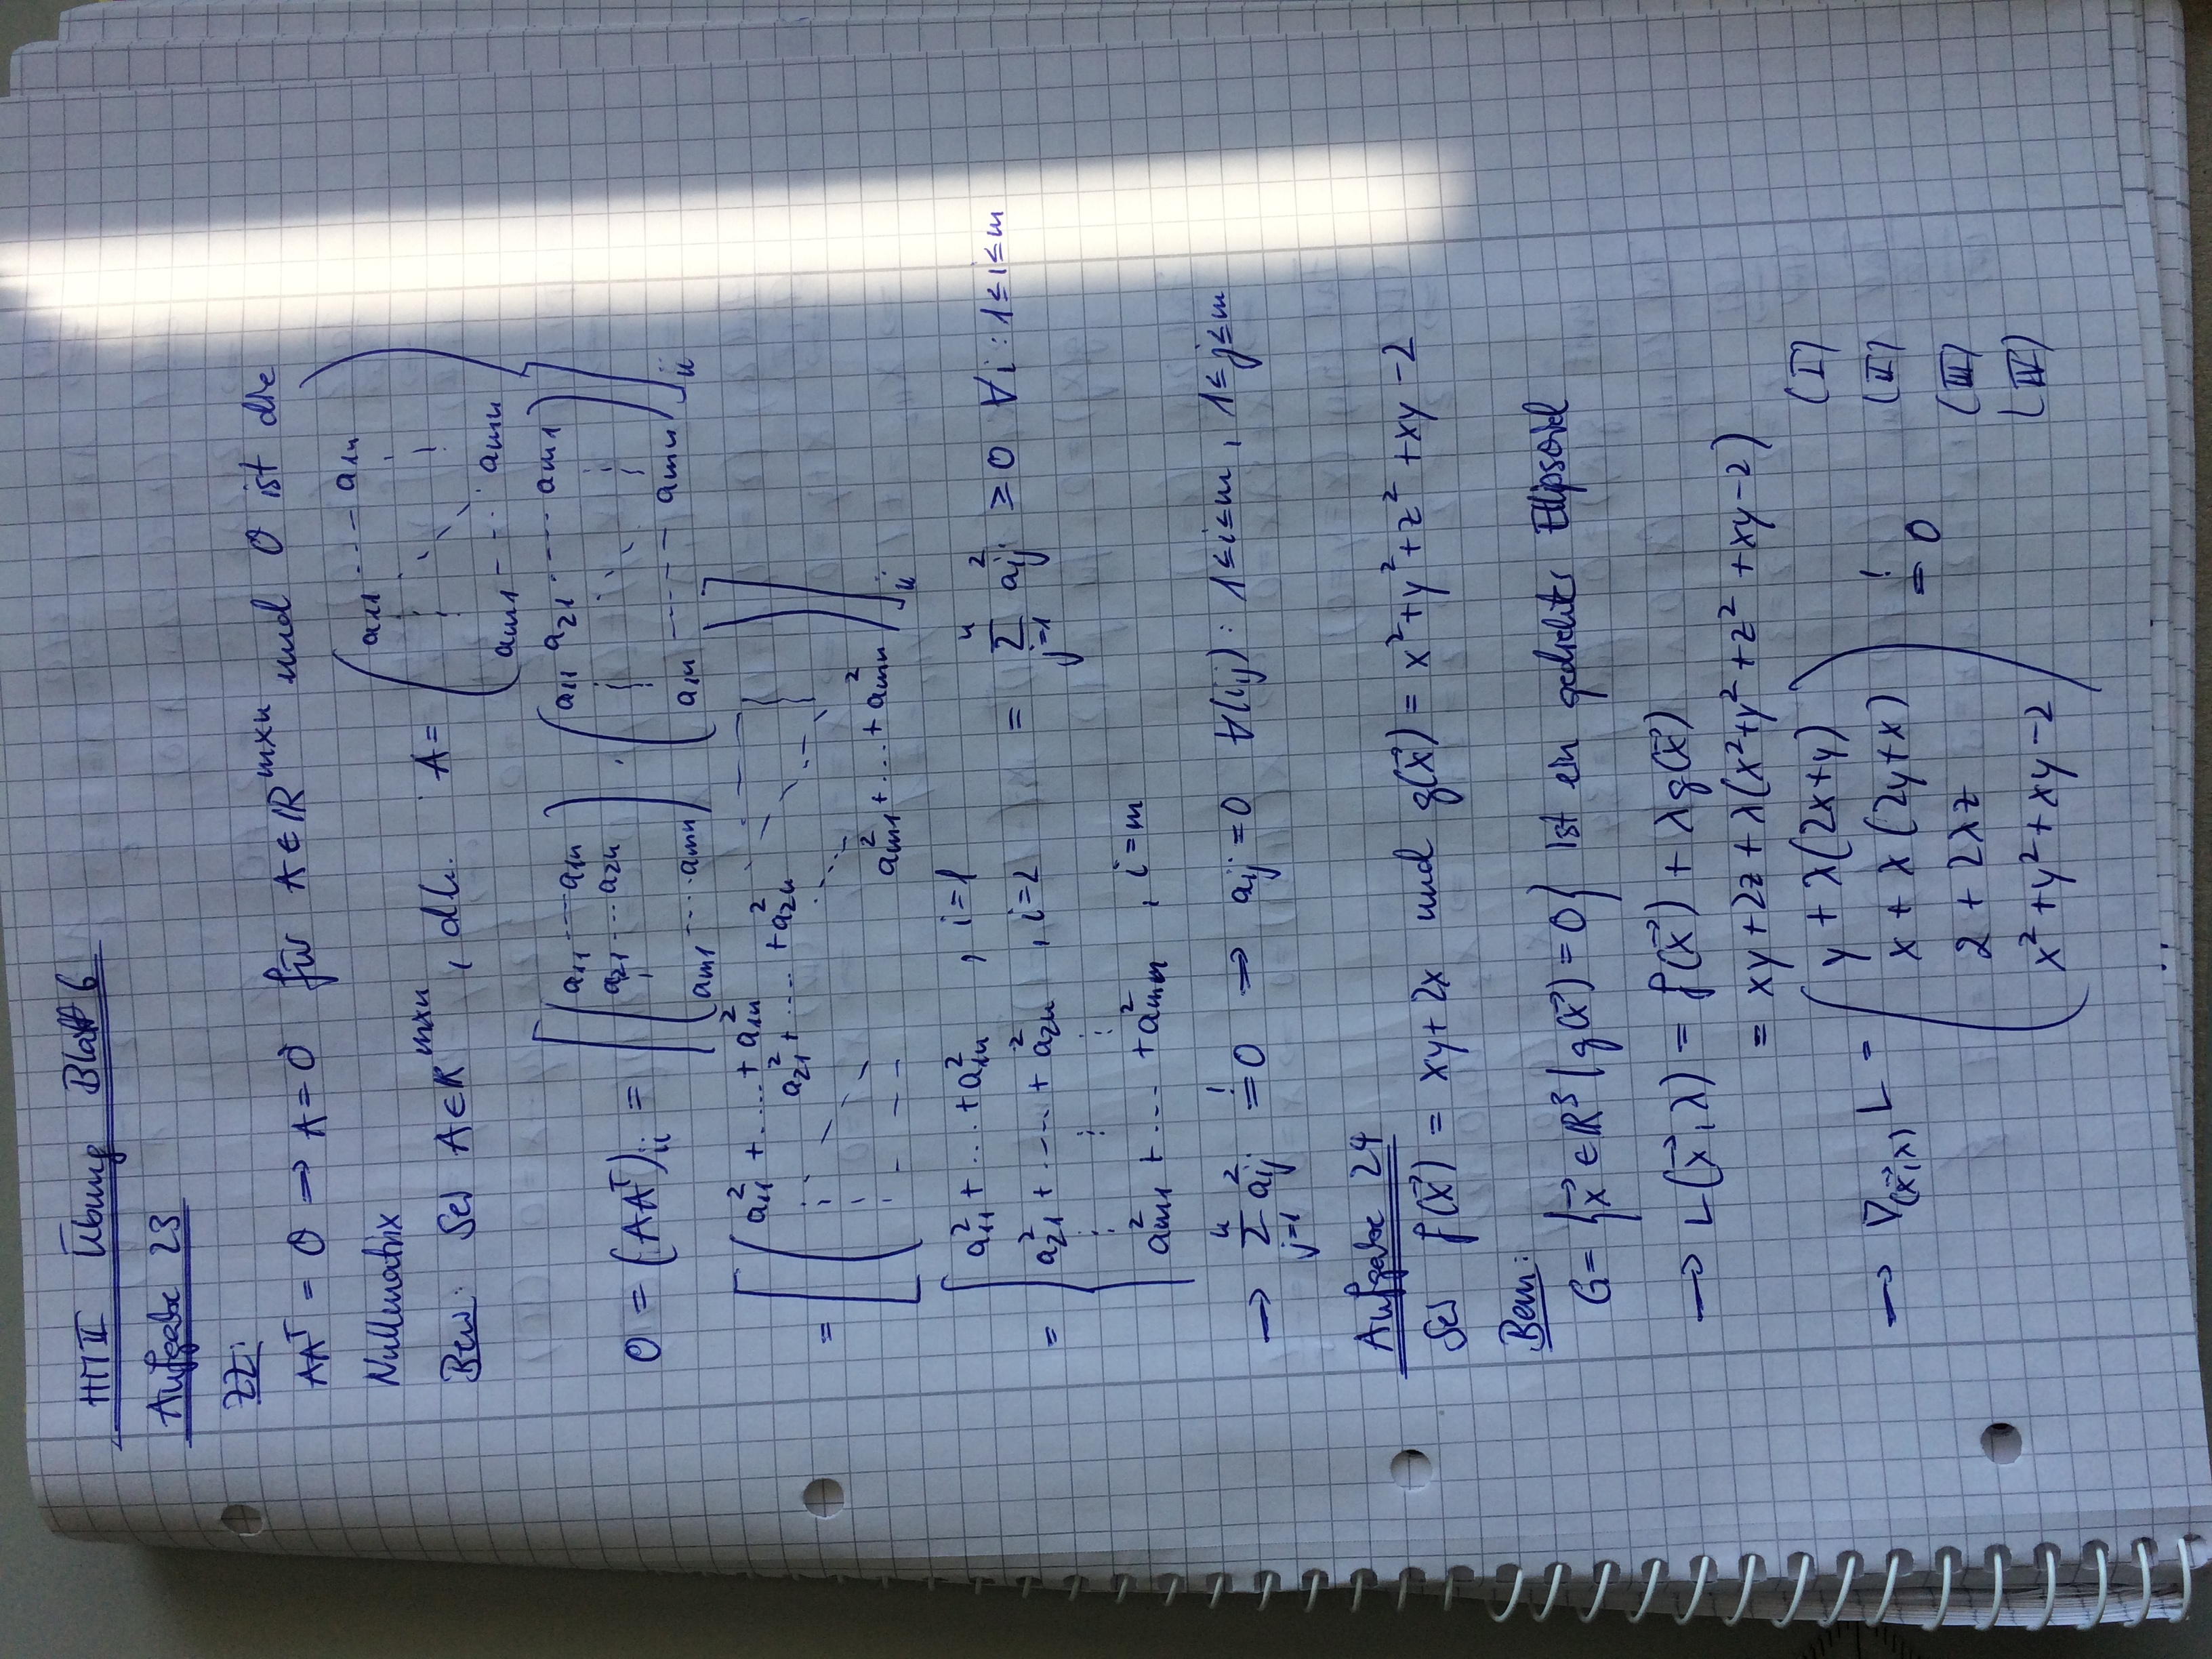 HM II Übung Blatt 6
Aufgabe 23
ZZ:
AAᵀ = 0 ⟹ A = 0 für A ∈ ℝ^(m×n) und 0 ist die
Nullmatrix
Bew: Sei A ∈ ℝ^(m×n), d.h. A = ( a₁₁ --- a₁ₙ ⋮ ⋱ ⋮ aₘ₁ --- aₘₙ )
0 = (AAᵀ)ᵢᵢ = [ ( a₁₁ --- a₁ₙ a₂₁ ... a₂ₙ ⋮ aₘ₁ ---- aₘₙ ) · ( a₁₁ a₂₁ ---- aₘ₁ ⋮ ⋱ ⋮ a₁ₙ ----- aₘₙ ) ]ᵢᵢ
= [ ( a₁₁² + .... + a₁ₙ²
a₂₁² + .... + a₂ₙ²
aₘ₁² + ... + aₘₙ² ) ]ᵢᵢ
= { a₁₁² + ... + a₁ₙ² , i=1
a₂₁² + ---- + a₂ₙ² , i=2 = Σ_(j=1)^n aᵢⱼ² ≥ 0 ∀i : 1≤i≤m
⋮ ⋮ ⋮
aₘ₁² + ---- + aₘₙ² , i=m
→ Σ_(j=1)^n aᵢⱼ² =! 0 ⟹ aᵢⱼ = 0 ∀(i,j) : 1≤i≤m , 1≤j≤m
Aufgabe 24
Sei f(x⃗) = xy+2x und g(x⃗) = x²+y²+z²+xy-2
Bem:
G = {x⃗ ∈ ℝ³ | g(x⃗) = 0} ist ein gedrehter Ellipsoid
→ L(x⃗,λ) = f(x⃗) + λg(x⃗)
= xy+2z+λ(x²+y²+z²+xy-2)
→ ∇_(x⃗,λ) L = ( y + λ(2x+y) (I)
x + λ(2y+x) =! 0 (II)
2 + 2λz (III)
x²+y²+xy-2 ) (IV)